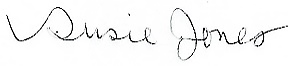 Susie Jones